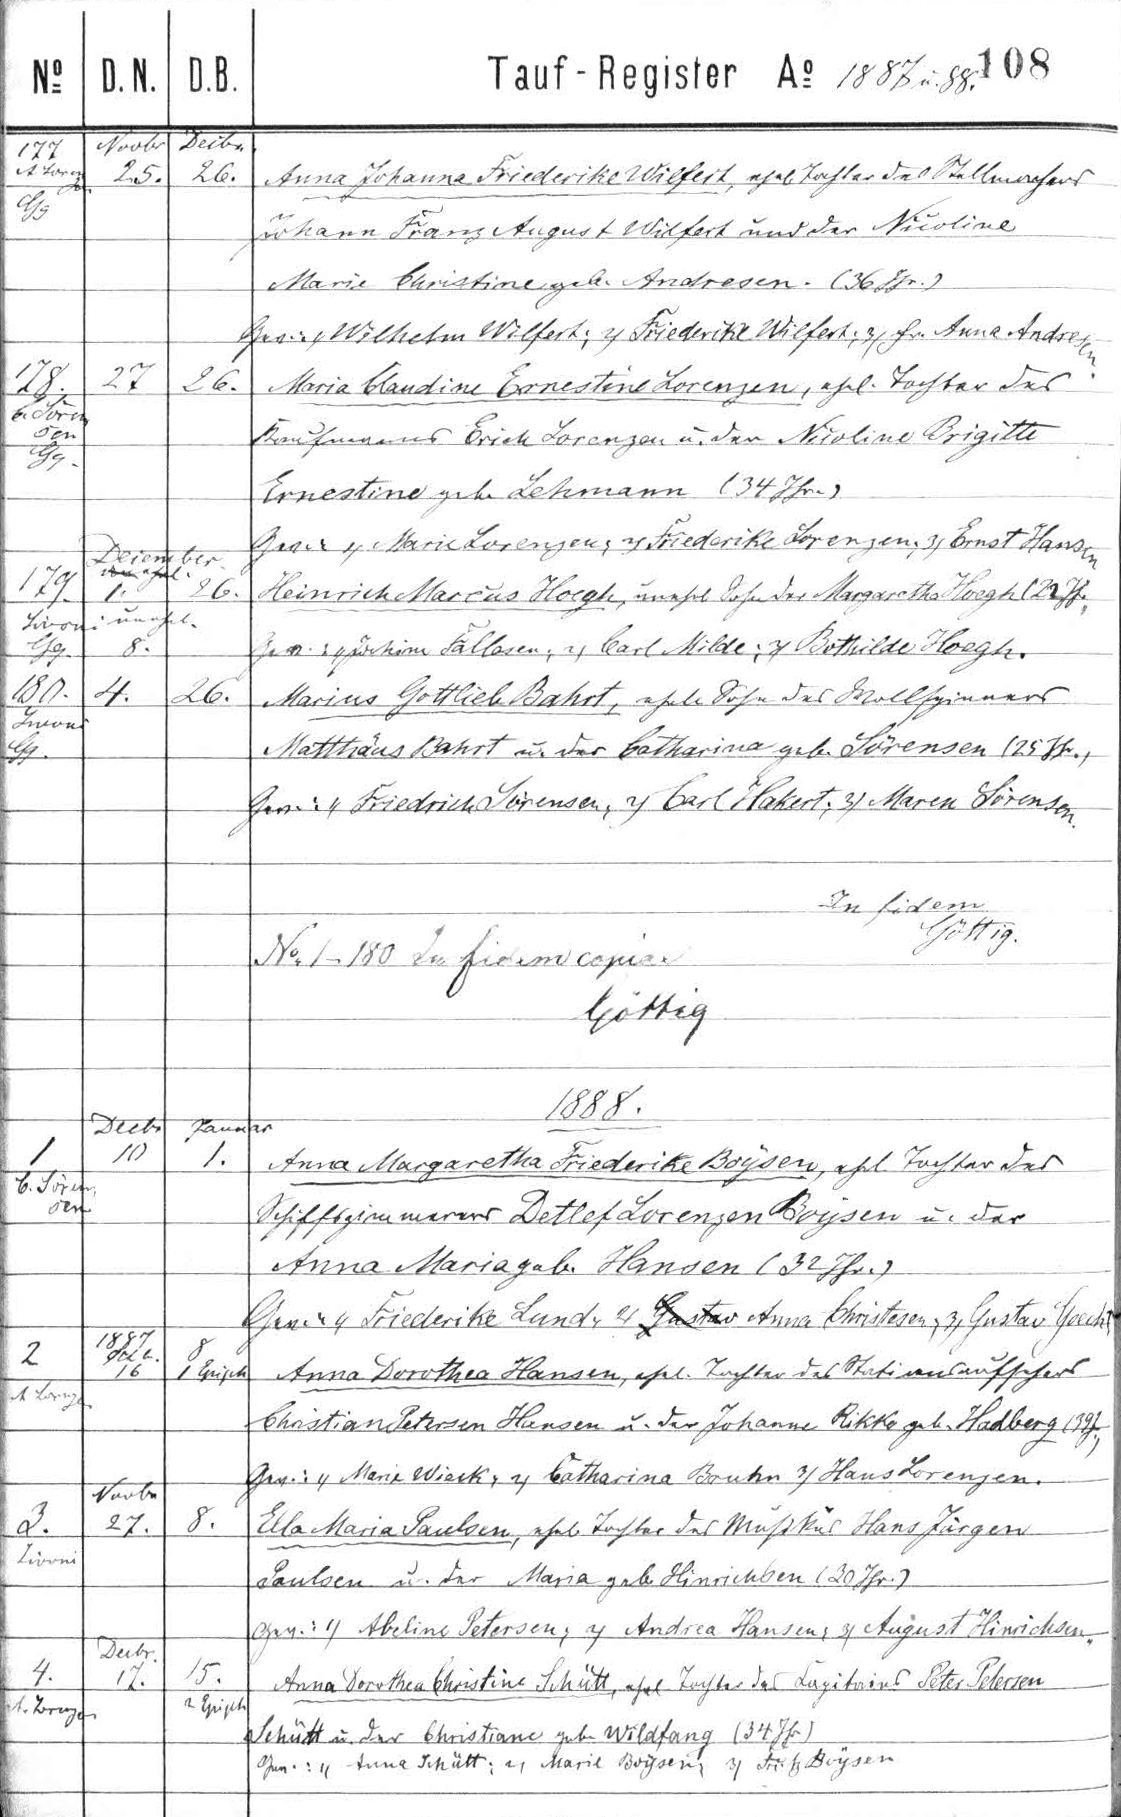 Nº D.N. D.B. Tauf-Register Aº 1887 u. 88. 108
177 Novbr Decbr
A Lorenz 25. 26. Anna Johanna Friederike Wilfert, ehel Tochter des Stellmachers
Gg Johann Franz August Wilfert und der Nicoline
Marie Christine geb. Andresen. (36 Jhr.)
Gev.: 1) Wilhelm Wilfert; 2) Friederike Wilfert; 3) Fr. Anna Andresen
178. 27 26. Maria Claudine Ernestine Lorenzen, ehel. Tochter des
C. Sören
sen Kaufmanns Erich Lorenzen u. der Nicoline Brigitte
Gg.
Ernestine geb. Lehmann (34 Jhr.)
Gev.: 1) Marie Lorenzen; 2) Friederike Lorenzen; 3) Ernst Hansen
Dezember
179. 1. 26. Heinrich Marcus Hoegh, unehel Sohn der Margaretha Hoegh (22 Jh.
unehel.
Gg. 8. Gev.: 1) Jochim Fallesen; 2) Carl Milde; 3) Bothilde Hoegh.
180. 4. 26. Marius Gottlieb Bahrt, ehel. Sohn des Wollspinners
Gg. Matthäus Bahrt u. der Catharina geb. Sörensen (25 Jh.)
Gev.: 1) Friedrich Sörensen; 2) Carl Hakert; 3) Maren Sörensen.
In fidem
Göttig.
No. 1-180 In fidem copiae
Göttig
1888.
Decbr Januar
1 10 1. Anna Margaretha Friederike Boÿsen, ehel Tochter des
C. Sören
sen Schiffszimmerers Detlef Lorenzen Boÿsen u. der
Anna Maria geb. Hansen (32 Jhr.)
Gev.: 1) Friederike Lund, 2) Gustav Anna Christesen; 3) Gustav
1887
2 16 8 1 Epiph Anna Dorothea Hansen, ehel. Tochter des Stationsaufsehers
A Lorenzen Christian Petersen Hansen u. der Johanne Rikke geb. Hadberg (39 J.)
Gev.: 1) Marie Wieck; 2) Catharina Bruhn 3) Hans Lorenzen.
Novbr
3. 27. 8. Ella Maria Paulsen, ehel Tochter des Musikus Hans Jürgen
Paulsen u. der Maria geb. Hinrichsen (30 Jhr.)
Gev.: 1) Abeline Petersen; 2) Andrea Hansen; 3) August Hinrichsen.
Decbr.
4. 17. 15. Anna Dorothea Christine Schütt, ehel Tochter des Capitains Peter Petersen
A. Lorenzen 2 Epiph Schütt u. der Christiane geb. Wildfang (34 Jhr)
Gev.: 1) Anna Schütt; 2) Marie Boÿsen; 3) Fritz Boÿsen